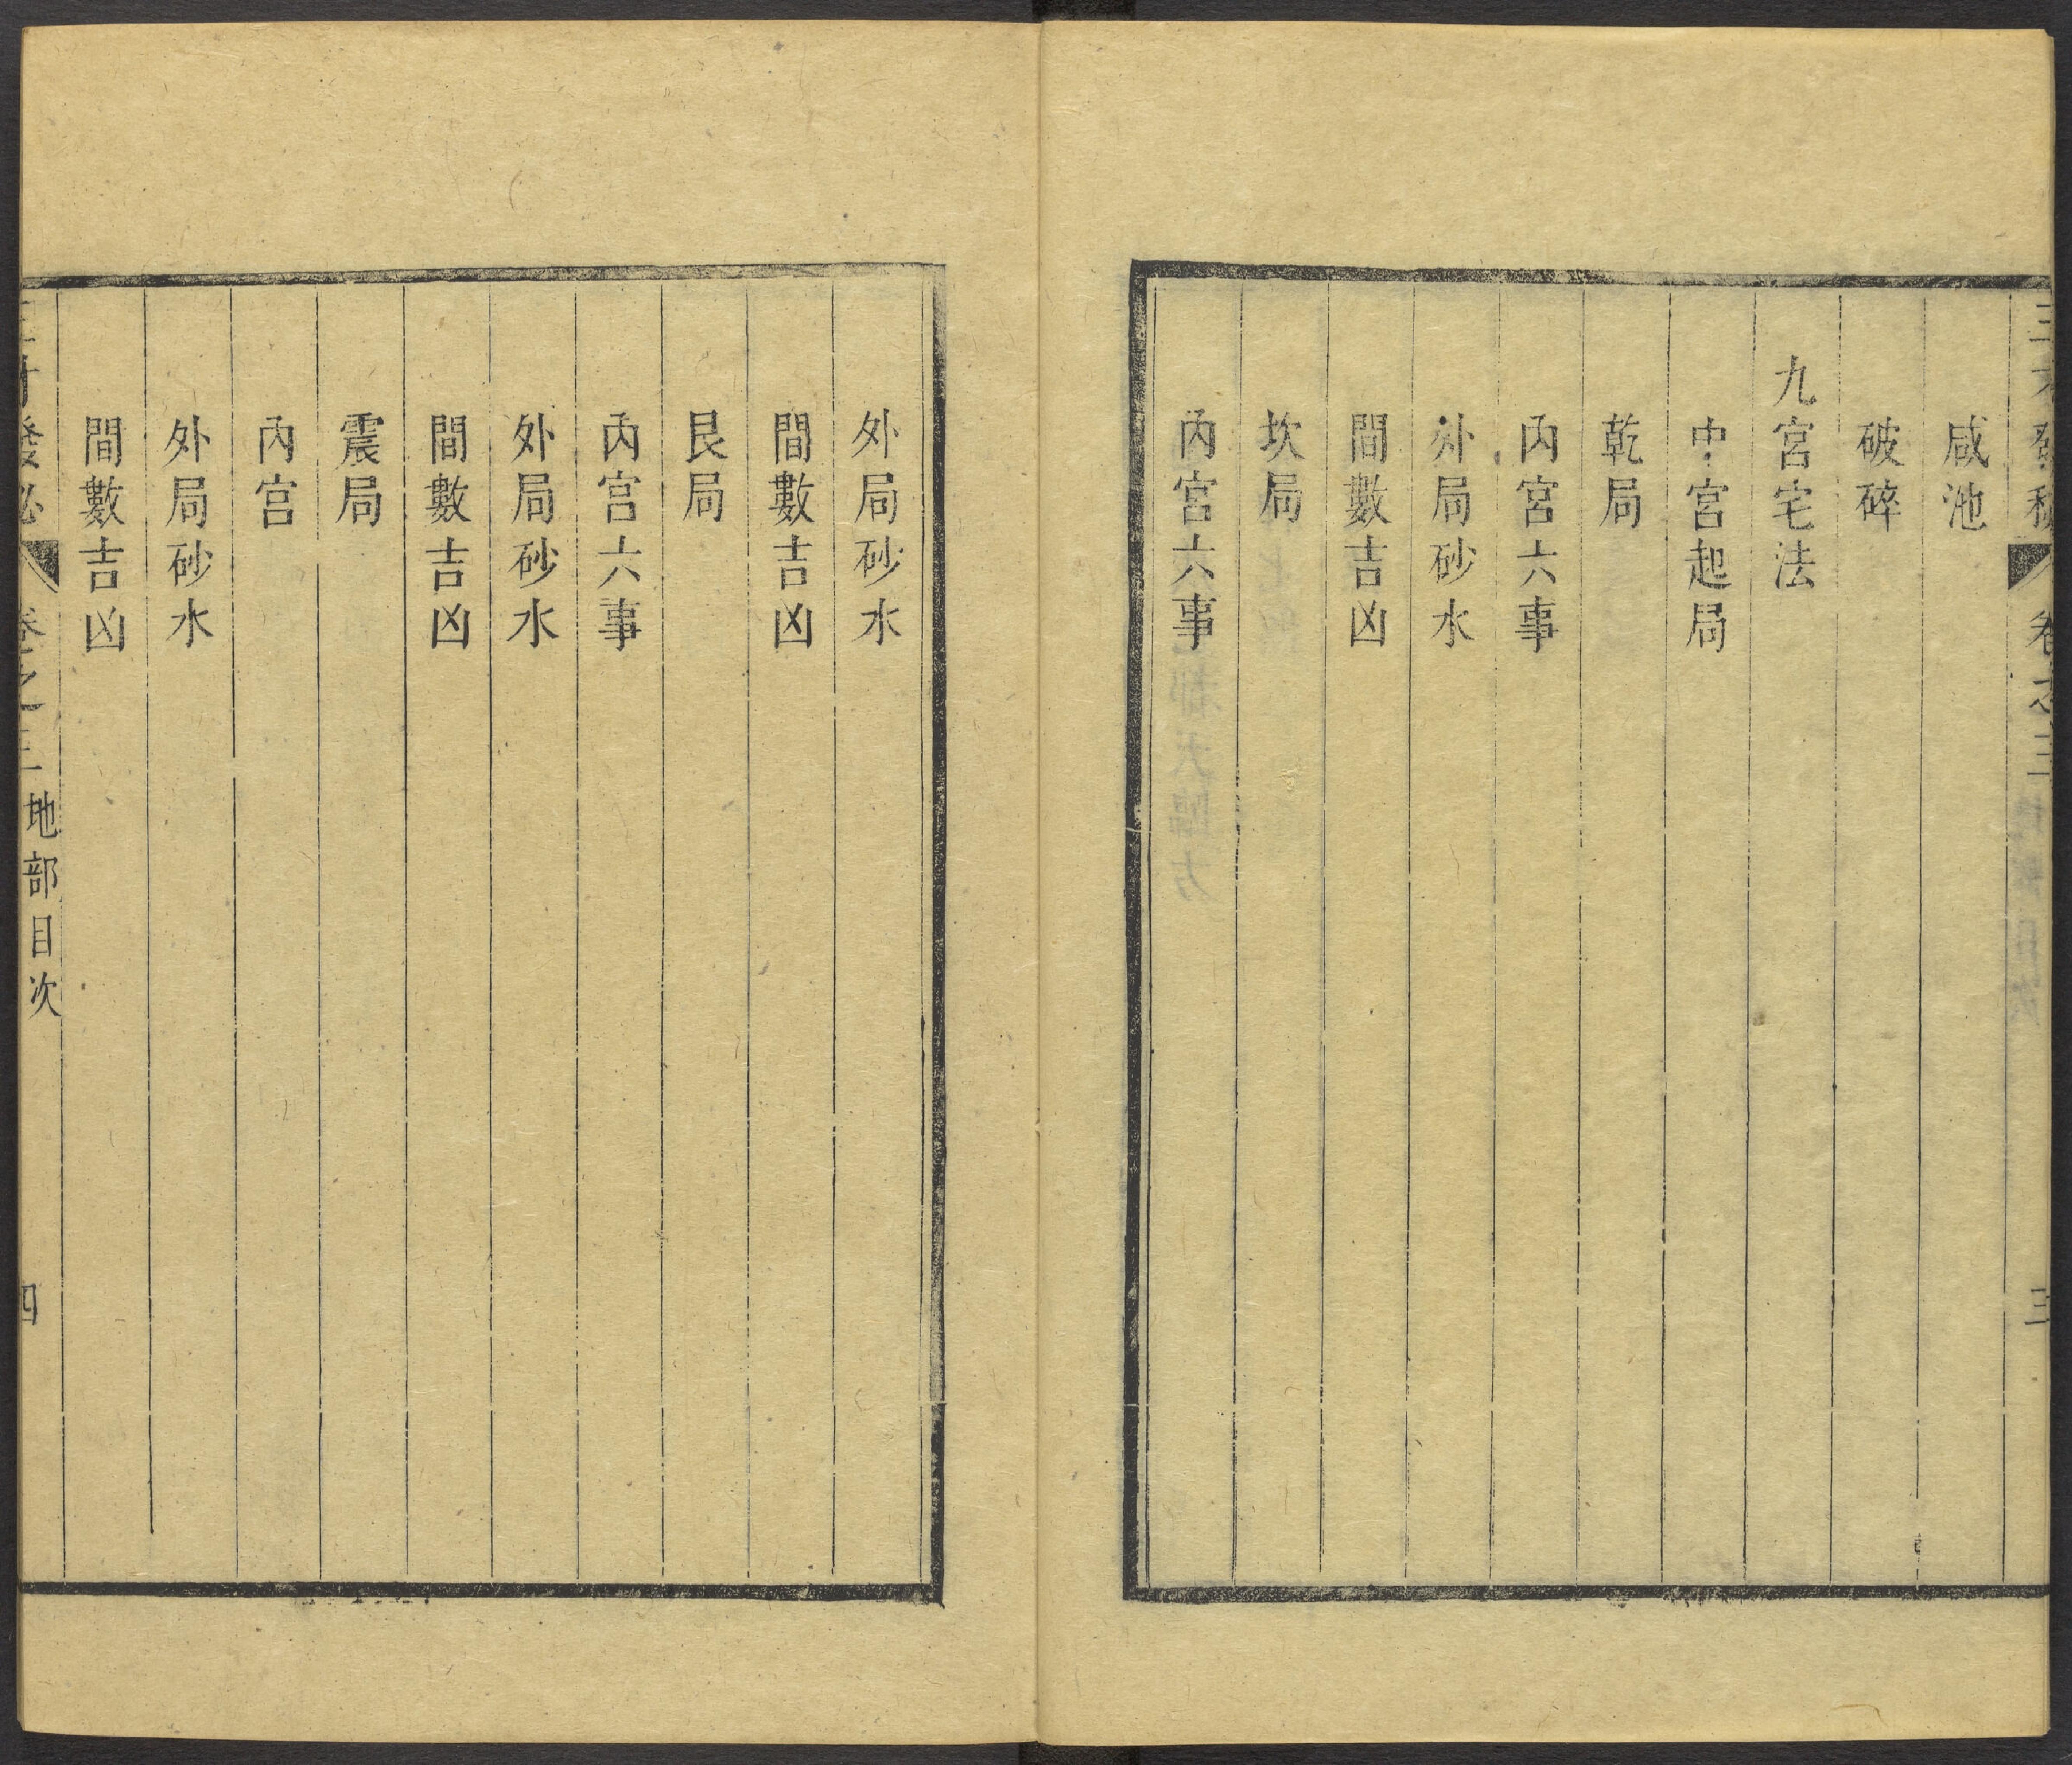 三才發秘
卷之三
三
咸池
破碎
九宮宅法
中宮起局
乾局
內宮六事
外局砂水
間數吉凶
坎局
內宮六事
外局砂水
間數吉凶
艮局
內宮六事
外局砂水
間數吉凶
震局
內宮
外局砂水
間數吉凶
三才發秘
卷之三
地部目次
四